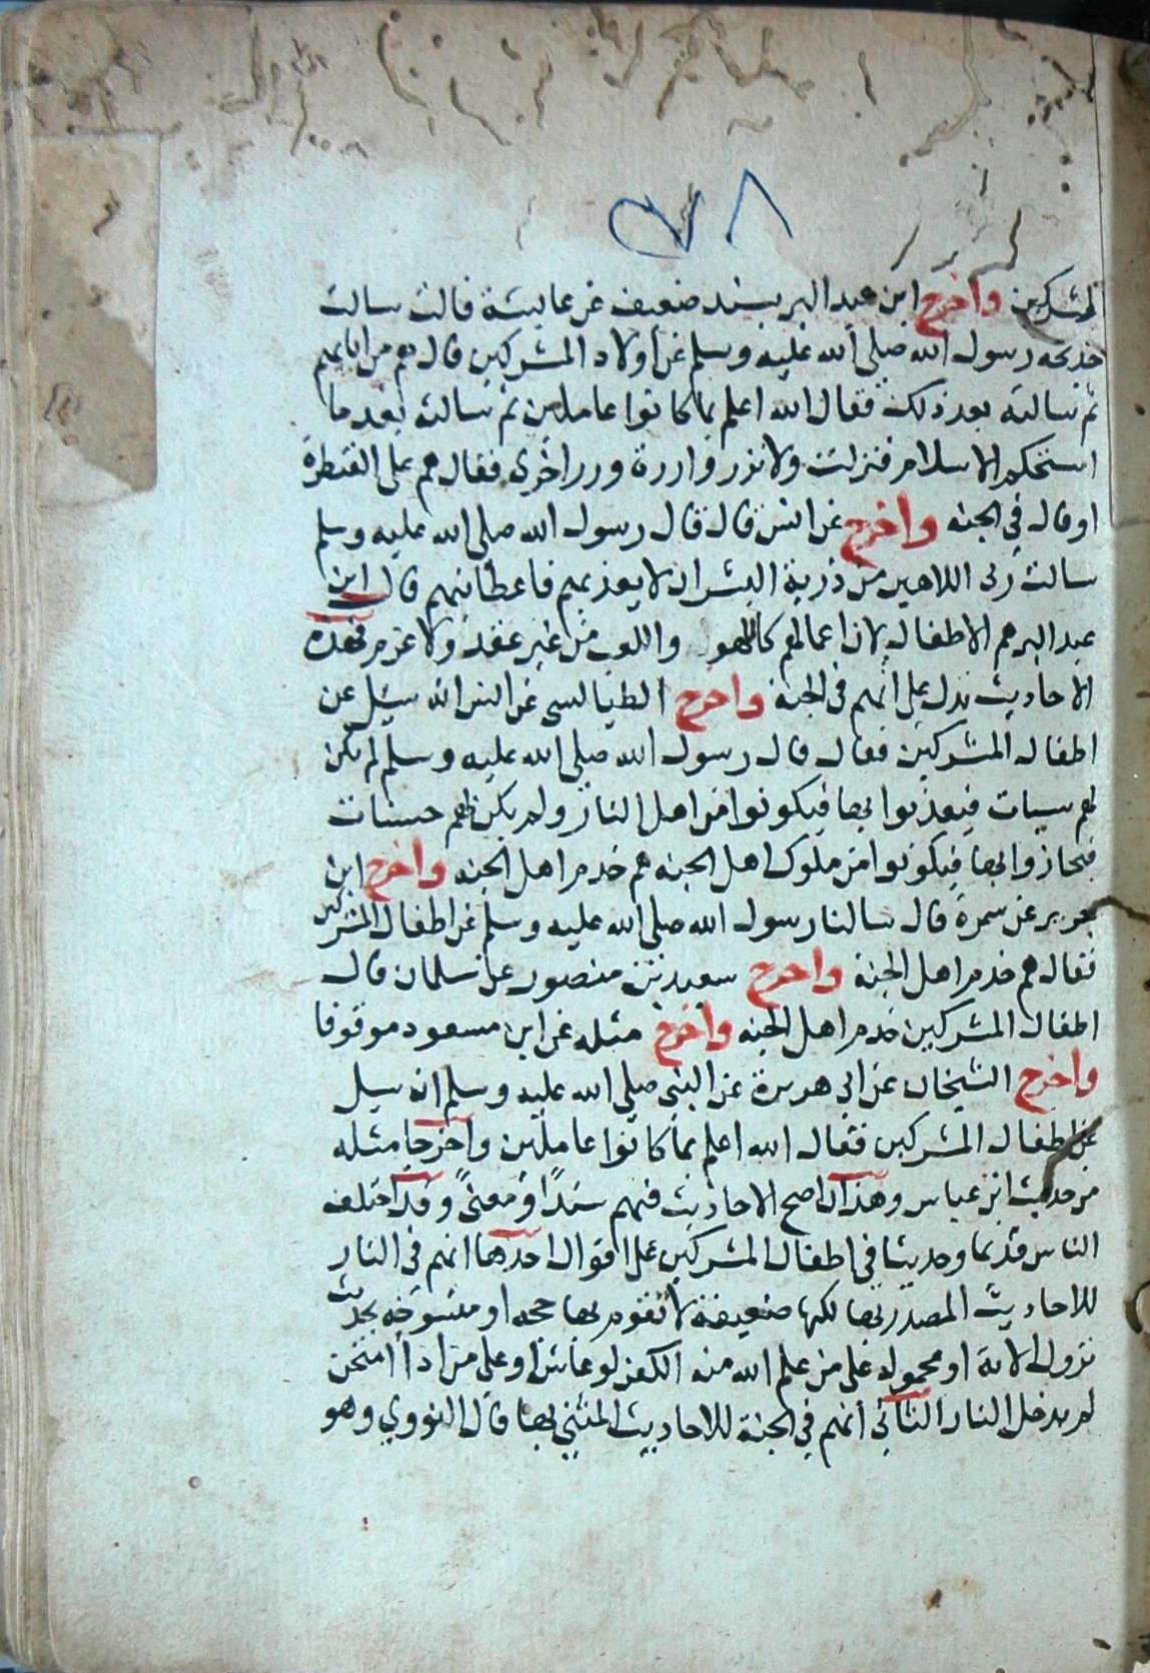 المشركين واخرج ابن عبد البر بسند ضعيف عن عايشة قالت سالت
خديجه رسول الله صلى الله عليه وسلم عن اولاد المشركين قال هم من ابايهم
ثم سالته بعد ذلك فقال الله اعلم بما كانوا عاملين ثم سالته بعد ما
استحكم الاسلام فنزلت ولا تزر وازرة وزر اخرى فقال هم على الفطرة
او قال في الجنه واخرج عن انس قال قال رسول الله صلى الله عليه وسلم
سالت ربى اللاهين من ذرية البشر ان لا يعذبهم فاعطانيهم قال ابن
عبد البر هم الاطفال لان اعمالهم كاللهو واللعب من غير عقد ولا عزم فهذه
الاحاديث تدل على انهم في الجنة واخرج الطيالسى عن انس انه سيل عن
اطفال المشركين فقال قال رسول الله صلى الله عليه وسلم لم يكن
لهم سيات فيعذبوا بها فيكونوا من اهل النار ولم يكن لهم حسنات
فيجازوا بها فيكونوا من ملوك اهل الجنه هم خدم اهل الجنه واخرج ابن
جرير عن سمرة قال سالنا رسول الله صلى الله عليه وسلم عن اطفال المشركين
فقال هم خدم اهل الجنة واخرج سعيد بن منصور عن سلمان قال
اطفال المشركين خدم اهل الجنه واخرج مثله عن ابن مسعود موقوفا
واخرج الشيخان عن ابى هريرة عن النبي صلى الله عليه وسلم انه سيل
عن اطفال المشركين فقال الله اعلم بما كانوا عاملين واخرجا مثله
من حديث ابن عباس وهذان اصح الاحاديث فيهم سندًا ومعنىً وقد اختلف
الناس قديما وحديثا في اطفال المشركين على اقوال احدها انهم في النار
للاحاديث المصدر بها لكنها ضعيفة لا تقوم بها حجه او منسوخه بحديث
نزول الاية او محموله على من علم الله منه الكفر لو عاش او على من اذا امتحن
لم يدخل النار الثاني انهم في الجنة للاحاديث المثنى بها قال النووي وهو